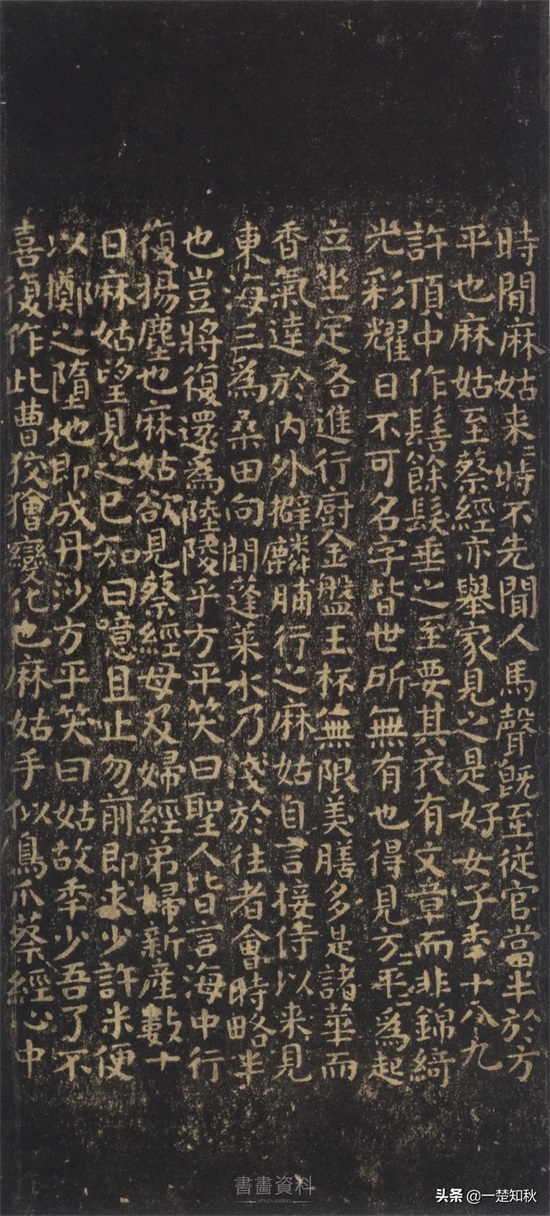 時間麻姑来〻時不先聞人馬聲既至從官當半於方
平也麻姑至蔡經亦舉家見之是好女子年十八九
許頂中作髻餘髮垂之至要其衣有文章而非錦綺
光彩耀日不可名字皆世所無有也得見方平〻為起
立坐定各進行厨金盤玉杯無限美膳多是諸華而
香氣達於內外擗麟脯行之麻姑自言接侍以来見
東海三為桑田向間蓬莱水乃淺於往者會時略半
也豈將復還為陸陵乎方平笑曰聖人皆言海中行
復揚塵也麻姑欲見蔡經母及婦經弟婦新產數十
日麻姑望見之已知曰噫且止勿前即求少許米便
以擲之墮地即成丹沙方平笑曰姑故年少吾了不
喜復作此曹狡獪變化也麻姑手似鳥爪蔡經心中
書畫資料
头条 @一楚知秋